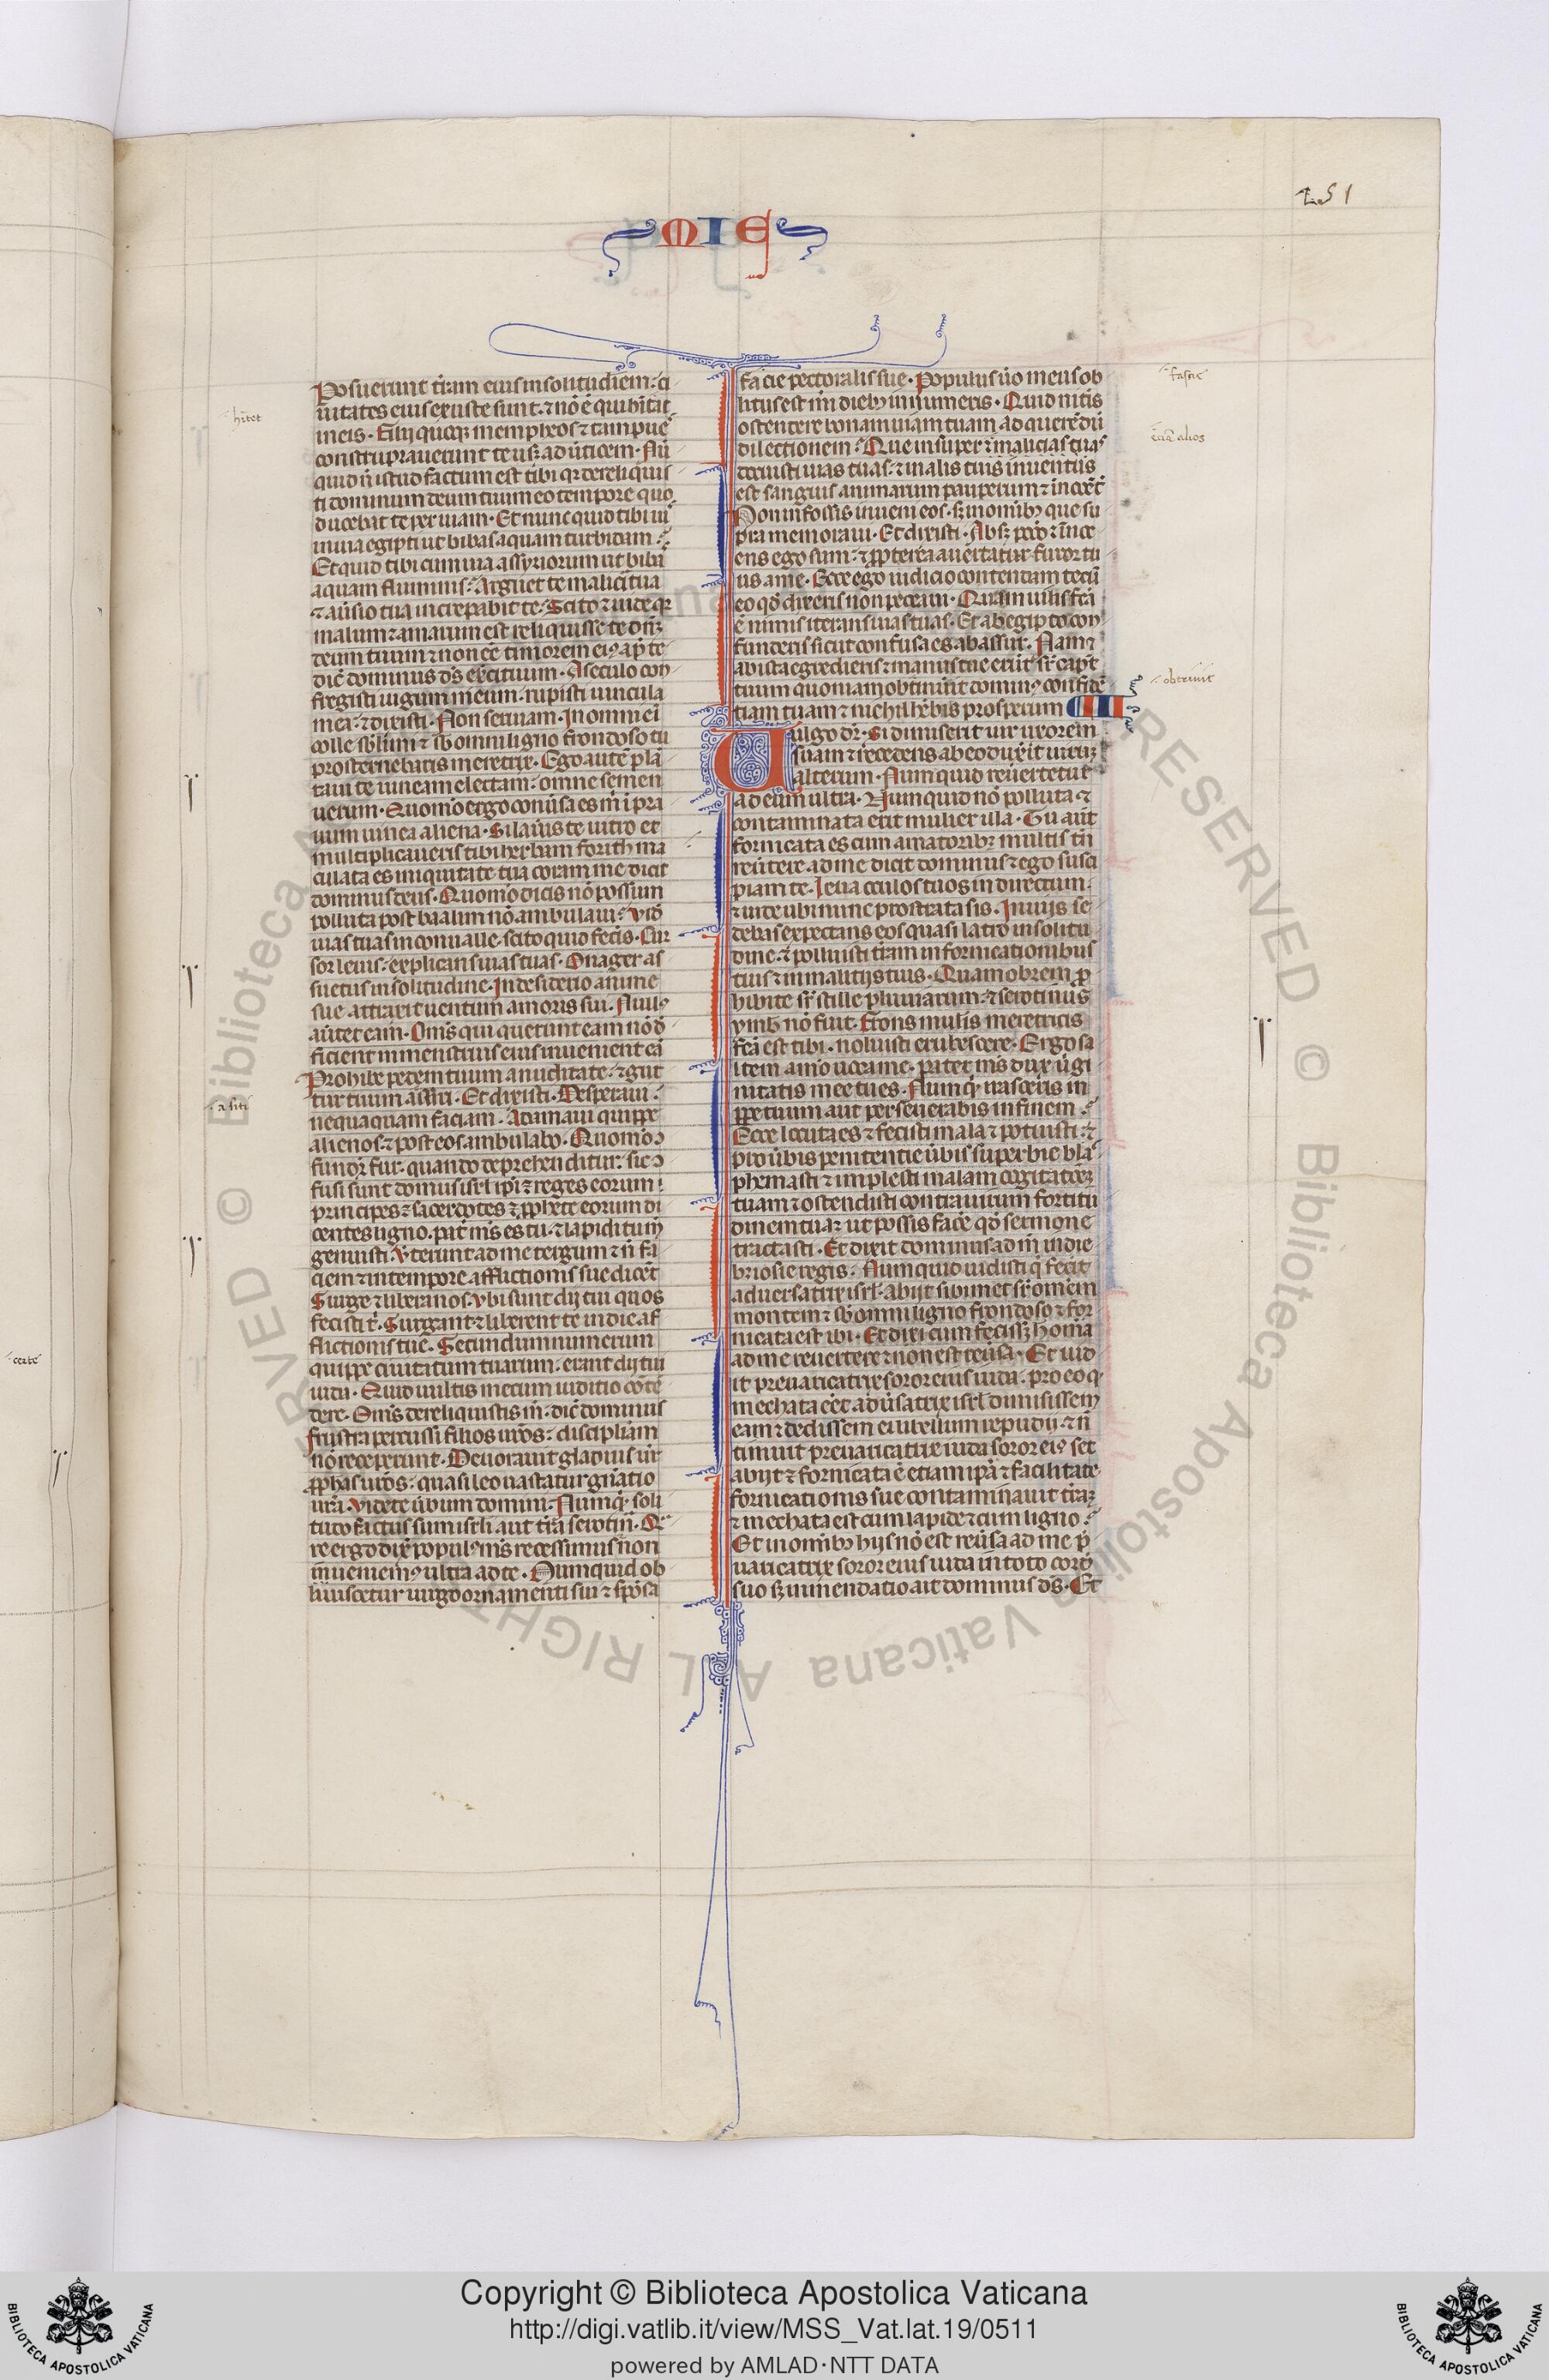 251
MIE
Posuerunt t̃ram eius in solitudiem : ci
uitates eius exuste sunt : ⁊ nõ ẽ qui hĩtat
in eis · Filij quoq; mempheos ⁊ tampnes
construprauerunt te usq; ad ũticem · Nũ
quid ñ istud factum est tibi qꝛ dereliquis
ti dominum deum tuum eo tempore quo
ducebat te per uiam · Et nunc quid tibi ĩ
uia egipti ut bibas aquam turbidam ·
Et quid tibi cum uia assyriorum ut bibas
aquam fluminis · Arguet te malicĩ tua
⁊ aũsio tua increpabit te · Scito ⁊ uide qꝛ
malum ⁊ amarum est reliquisse te dñm
deum tuum ⁊ non eẽ timorem eiꝰ ap̃ te
diĉ dominus ds̃ exercituum · A seculo con
fregisti iugum meum · rupisti uincula
mea : ⁊ dixisti · Non seruiam · In omni ei
colle sb̃limi ⁊ sb̃ omni ligno frondoso tu
prosternebaris meretrix · Ego autẽ plã
taui te uineam electam : omne semen
uerum · Quomõ ergo conũsa es m̃ i pra
uum uinea aliena · Si laũis te nitro et
multiplicaueris tibi herbam forith ma
culata es iniquitate tua coram me dicit
dominus deus · Quomõ dicis nõ possum
polluta post baalim nõ ambulaui · Vid̃
uias tuas in conualle · scito quid fecĩs · Cur
sor leuis · explicans uias tuas · Onager as
suetus in solitudine · In desiderio anime
sue attraxit uentum amoris sui · Nullꝰ
aũtet eam · Oms̃ qui querunt eam nõ d̃
ficient in menstruis eius inuenient eã
Prohibe pedem tuum a nuditate · ⁊ gut
tur tuum a siti · Et dixisti · Desperaui ·
nequaquam faciam · Adamaui quippe
alienos ⁊ post eos ambulabo · Quomõ ↄ
fundꝛ̃ fur · quando deprehenditur : sic ↄ
fusi sunt domus isrl̃ ipĩ ⁊ reges eorum ·
principes ⁊ sacerdotes ⁊ ꝓphete eorum di
centes ligno · pat̃ ms̃ es tu · ⁊ lapidi tu m̃
genuisti · Vterunt ad me tergum ⁊ ñ fa
ciem ⁊ in tempore afflictionis sue dicẽt
Surge ⁊ libera nos · Vbi sunt dij tui quos
fecisti t̃ · Surgant ⁊ liberent te in die af
flictionis tue · Secundum numerum
quippe ciuitatum tuarum · erant dij tui
iuda · Quid uultis mecum iuditio cõtẽ
dere · Oms̃ dereliquistis m̃ · diĉ dominus
frustra percussi filios uros̃ : disciplinam
nõ receperunt · Deuorauit gladius ur̃
ꝓphas̃ uros̃ : quasi leo uastatur gñatio
ur̃a · Videte ũbum domini · Numq̃ soli
tudo factus sum isrl̃i aut t̃ra serotina · Q̃
re ergo dix̃ populꝰ ms̃ recessimus non
inueniemꝰ ultra ad te · Numquid ob
liuiscetur uirgo ornamenti sui ⁊ spõsa
facie pectoralis sue · Populus ũo meus ob
litus est m̃i diebꝫ innumeris · Quid nitris
ostendere bonam uiam tuam ad querẽdũ
dilectionem · Que insuper ⁊ malicias tuas
docuisti uias tuas : ⁊ in alis tuis inuentus
est sanguis animarum pauperum ⁊ innocẽt
Non in fossis inueni eos · sꝫ in omĩbꝫ que su
pra memoraui · Et dixisti · Absqꝫ pccõ ⁊ inno
ens ego sum : ⁊ ꝓpterea auertatur furor tu
us a me · Ecce ego iudicio contendam tecũ
eo qd̃ dixeris non peccaui · Quam uilis fcã
ẽ nimis iterans uias tuas · Et ab egipto con
funderis sicut confusa es ab assur · Nam ⁊
ab ista egredieris ⁊ manus tue erũt sr̃ capt̃
tuum quoniam obtiniuit dominꝰ confidẽ
tiam tuam ⁊ nichil hẽbis prosperum III
Uulgo dr̃ · Si dimiserit uir uxorem
suam ⁊ recedens ab eo duxerit uirũ
alterum · Numquid reuertetur
ad eum ultra · Numquid nõ polluta ⁊
contaminata erit mulier illa · Tu aut̃
fornicata es cum amatoribꝫ multis tñ
reũtere ad me dicit dominus ⁊ ego susci
piam te · Leua oculos tuos in directum ·
⁊ uide ubi nunc prostrata sis · In uijs se
debas expectans eos quasi latro in solitu
dine · ⁊ polluisti t̃ram in fornicationibus
tuis ⁊ in malitijs tuis · Quam obrem ꝓ
hibite sr̃ stille pluuiarum · ⁊ serotinus
ymb̃ nõ fuit · Frons mulis̃ meretricis
fcã est tibi · noluisti erubescere · Ergo sa
ltem amõ uoca me · Pater ms̃ dux ũgi
nitatis mee tu es · Numq̃ irasceris in
ppetuum aut perseuerabis in finem ·
Ecce locuta es ⁊ fecisti mala ⁊ potuisti · ⁊
pro ũbis penitentie ũbis superbie blas
phemasti ⁊ implesti malam cogitatõꝫ
tuam ⁊ ostendisti contra uirum fortitu
dinem tuaꝫ ut possis facẽ qd̃ sermone
tractasti · Et dixit dominus ad m̃ in die
bꝫ iosie regis · Numquid uidisti q̃ fecit
aduersatrix isrl̃ · abijt sibimet sr̃ omẽm
montem ⁊ sb̃ omni ligno frondoso ⁊ for
nicata est ibi · Et dixi cum fecissꝫ h̃ omĩa
ad me reuertere ⁊ non est reũsa · Et uid
it preuaricatrix soror eius iuda · pro eo q
mechata eẽt adũsatrix isrl̃ dimisissem
eam ⁊ dedissem ei libellum repudij ⁊ ñ
timuit preuaricatrix iuda soror eiꝰ set
abijt ⁊ fornicata ẽ etiam ipã ⁊ facilitate
fornicationis sue contaminauit t̃raꝫ
⁊ mechata est cum lapide ⁊ cum ligno ·
Et in omĩbꝫ hijs nõ est reũsa ad me p̃
uaricatrix soror eius iuda in toto corde
suo sꝫ in mendatio ait dominus ds̃ · Et
hĩtet
a siti
fascie
tuas alios
obtriuit
certe
Copyright © Biblioteca Apostolica Vaticana
http://digi.vatlib.it/view/MSS_Vat.lat.19/0511
powered by AMLAD·NTT DATA
BIBLIOTECA APOSTOLICA VATICANA
BIBLIOTECA APOSTOLICA VATICANA